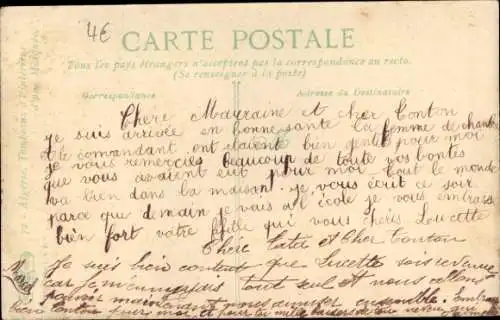 4€
CARTE POSTALE
Tous les pays étrangers n'acceptent pas la correspondance au recto.
(Se renseigner à la poste)
Correspondance
Adresse du Destinataire
Chère Mayraine et cher Tonton
je suis arrivée en bonne santé la femme de chambre
et le commandant ont étaient bien gentil pour moi
je vous remercies beaucoup de toute vos bontés
que vous avaient eut pour moi tout le monde
va bien dans la maison. je vous écrit ce soir
parce que demain je vais al école je vous embrasse
bien fort votre fille qui vous chéris Loucette
Chère Tata et Cher Tonton
Je suis bien content que Lucette sois revenue
car je m'ennuyais tout seul et nous allons
pouvoir maintenant nous amuser ensemble.
bien tonton pour moi et pour tu mille baisers de ton neveu qui